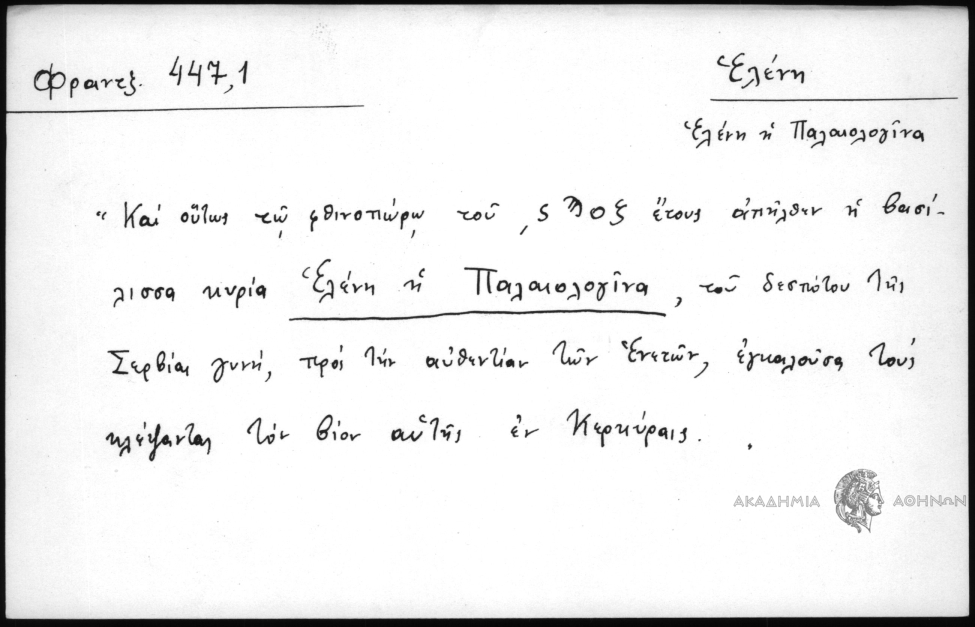 Φραντζ. 447,1
Ἑλένη
Ἑλένη ἡ Παλαιολογῖνα
"Καί οὕτως τῷ φθινοπώρῳ τοῦ ͵ϛϠοξ ἔτους ἀπῆλθεν ἡ βασί-
λισσα κυρία Ἑλένη ἡ Παλαιολογῖνα, τοῦ δεσπότου τῆς
Σερβίας γυνή, πρός τήν αὐθεντίαν τῶν Ἑνετῶν, ἐγκαλοῦσα τούς
κλέψαντας τόν βίον αὑτῆς ἐν Κερκύραις.
ΑΚΑΔΗΜΙΑ ΑΘΗΝΩΝ